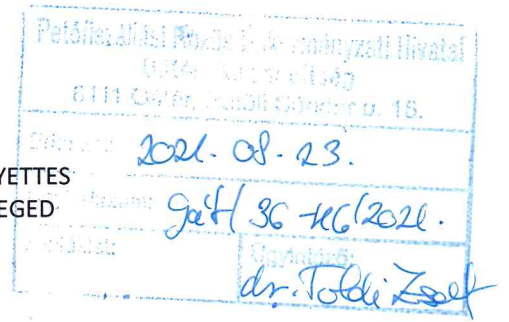 Petőfiszállási Közös Önkormányzati Hivatal
6111 Gátér, Petőfi Sándor u. 16.
2021. 08. 23.
YETTES
EGED
Gát/ 36 -16/2021.
Ügyintéző:
dr. Toldi Zsolt